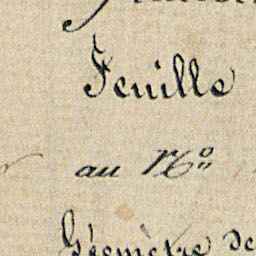 Feuille
au N°
Géomètre de